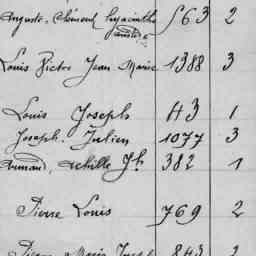 Auguste, Clément Hyacinthe 563 2
Louis Pietro Jean Marie 1388 3
Louis Joseph 43 1
Joseph. Julien 1077 3
Armand, Achille Jh 382 1
Pierre Louis 769 2
Pierre Marie Joseph 843 2